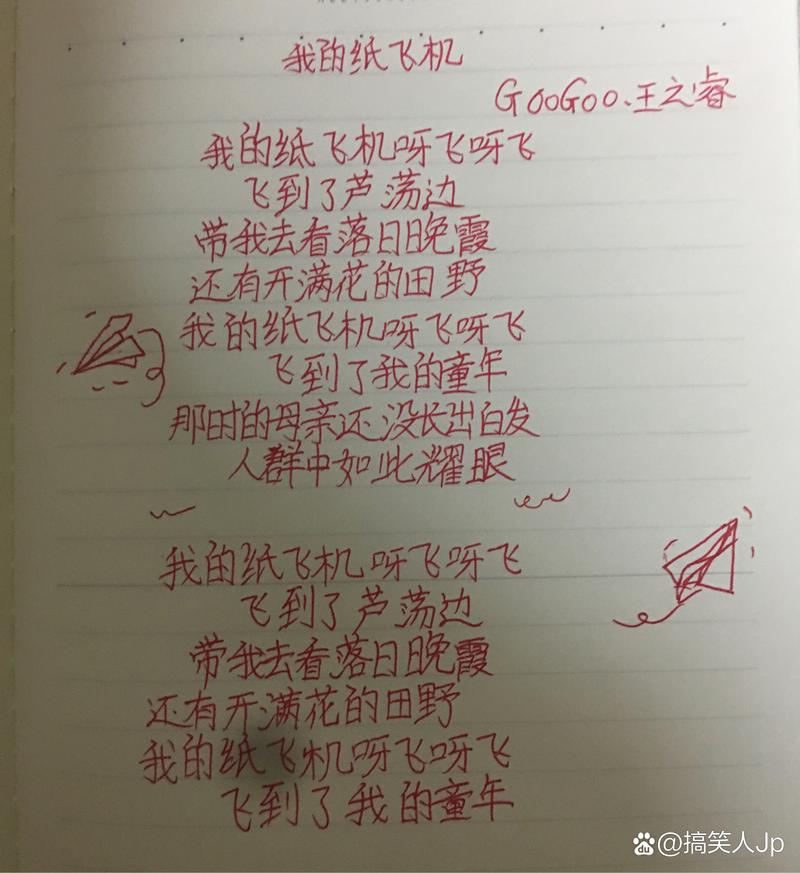 我的纸飞机
GooGoo、王之睿
我的纸飞机呀飞呀飞
飞到了芦荡边
带我去看落日晚霞
还有开满花的田野
我的纸飞机呀飞呀飞
飞到了我的童年
那时的母亲还没长出白发
人群中如此耀眼
我的纸飞机呀飞呀飞
飞到了芦荡边
带我去看落日晚霞
还有开满花的田野
我的纸飞机呀飞呀飞
飞到了我的童年
du @搞笑人Jp